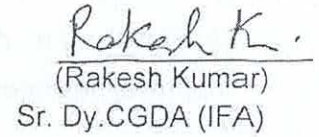 Rakesh K.
(Rakesh Kumar)
Sr. Dy.CGDA (IFA)